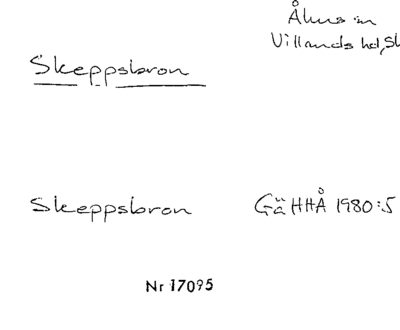 Åhus sn
Villands hd, Sk
Skeppsbron
Skeppsbron GäHHÅ 1980:5
Nr 17095